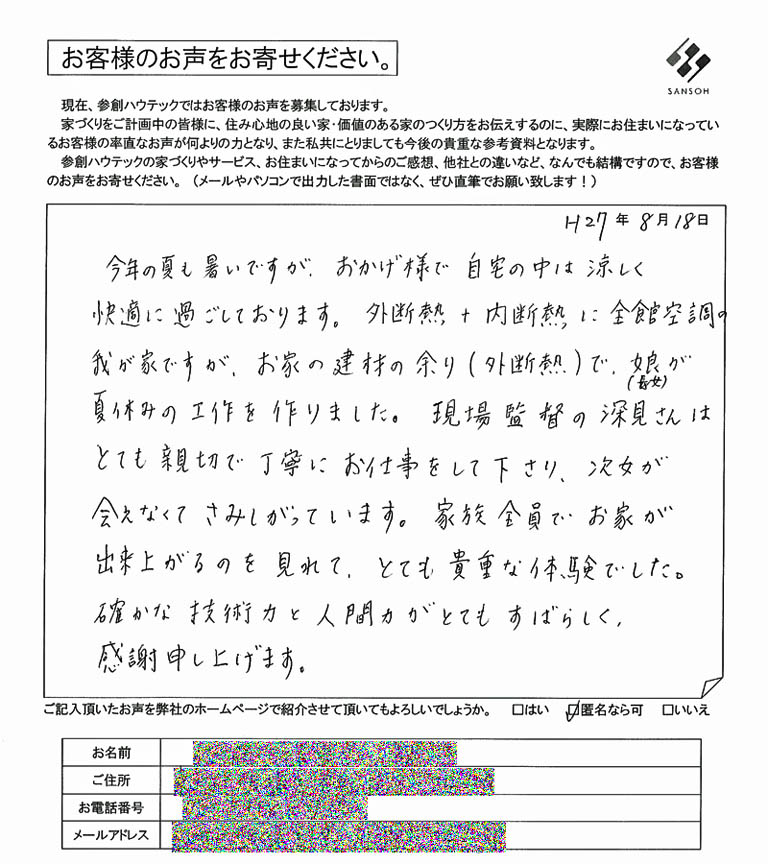 お客様のお声をお寄せください。
SANSOH
現在、参創ハウテックではお客様のお声を募集しております。
家づくりをご計画中の皆様に、住み心地の良い家・価値のある家のつくり方をお伝えするのに、実際にお住まいになってい
るお客様の率直なお声が何よりの力となり、また私共にとりましても今後の貴重な参考資料となります。
参創ハウテックの家づくりやサービス、お住まいになってからのご感想、他社との違いなど、なんでも結構ですので、お客様
のお声をお寄せください。（メールやパソコンで出力した書面ではなく、ぜひ直筆でお願い致します！）
H27年8月18日
今年の夏も暑いですが、おかげ様で自宅の中は涼しく
快適に過ごしております。外断熱+内断熱に全館空調の
我が家ですが、お家の建材の余り(外断熱)で、娘が
(長女)
夏休みの工作を作りました。現場監督の深見さんは
とても親切で丁寧にお仕事をして下さり、次女が
会えなくてさみしがっています。家族全員でお家が
出来上がるのを見れて、とても貴重な体験でした。
確かな技術力と人間力がとてもすばらしく、
感謝申し上げます。
ご記入頂いたお声を弊社のホームページで紹介させて頂いてもよろしいでしょうか。 □はい ☑匿名なら可 □いいえ
お名前
ご住所
お電話番号
メールアドレス